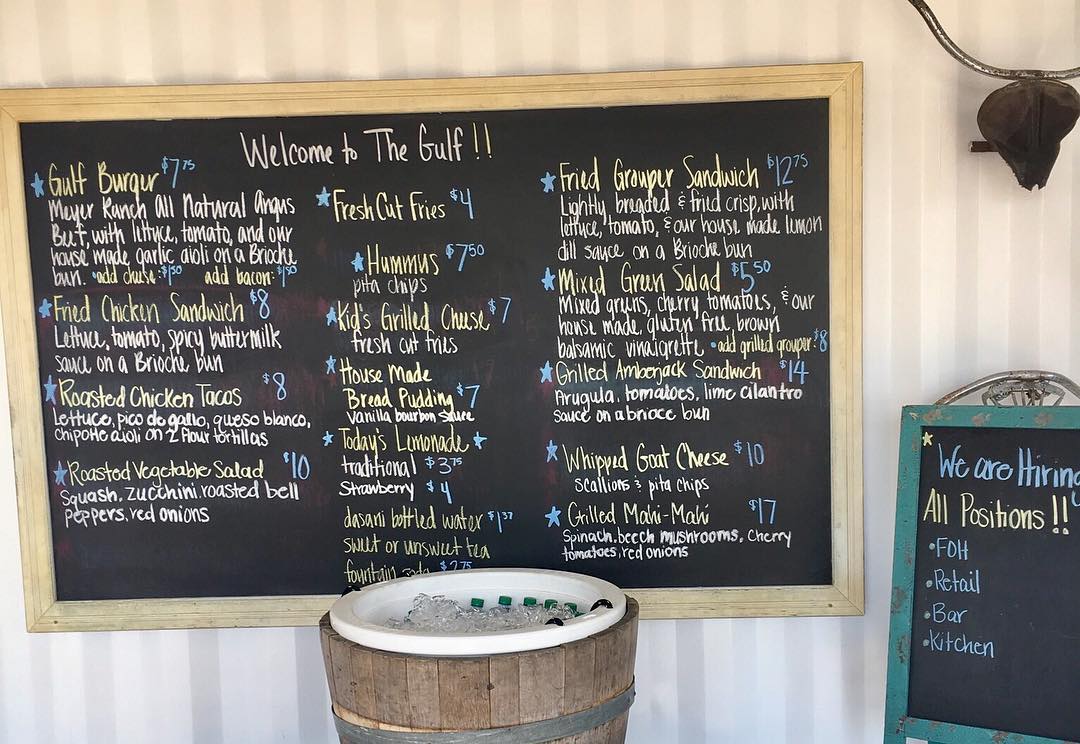 Welcome to The Gulf !!
Gulf Burger $7.75
Meyer Ranch All Natural Angus
Beef, with lettuce, tomato, and our
house made, garlic aioli on a Brioche
bun. • add cheese: $1.50 add bacon: $1.50
Fried Chicken Sandwich $8
Lettuce, tomato, spicy buttermilk
sauce on a Brioche bun
Roasted Chicken Tacos $8
Lettuce, pico de gallo, queso blanco,
chipotle aioli on 2 flour tortillas
Roasted Vegetable Salad $10
Squash, zucchini, roasted bell
peppers, red onions
Fresh Cut Fries $4
Hummus $7.50
pita chips
Kid's Grilled Cheese $7
fresh cut fries
House Made
Bread Pudding $7
vanilla bourbon sauce
Today's Lemonade
traditional $3.75
Strawberry $4
dasani bottled water $1.37
sweet or unsweet tea
fountain soda $2.75
Fried Grouper Sandwich $12.75
Lightly breaded & fried crisp, with
lettuce, tomato, & our house made lemon
dill sauce on a Brioche bun
Mixed Green Salad $5.50
Mixed greens, cherry tomatoes, & our
house made, gluten free, brown
balsamic vinaigrette • add grilled grouper: $8
Grilled Amberjack Sandwich $14
Arugula, tomatoes, lime cilantro
sauce on a brioce bun
Whipped Goat Cheese $10
scallions & pita chips
Grilled Mahi-Mahi $17
Spinach, beech mushrooms, cherry
tomatoes, red onions
We are Hiring
All Positions !!
• FOH
• Retail
• Bar
• Kitchen